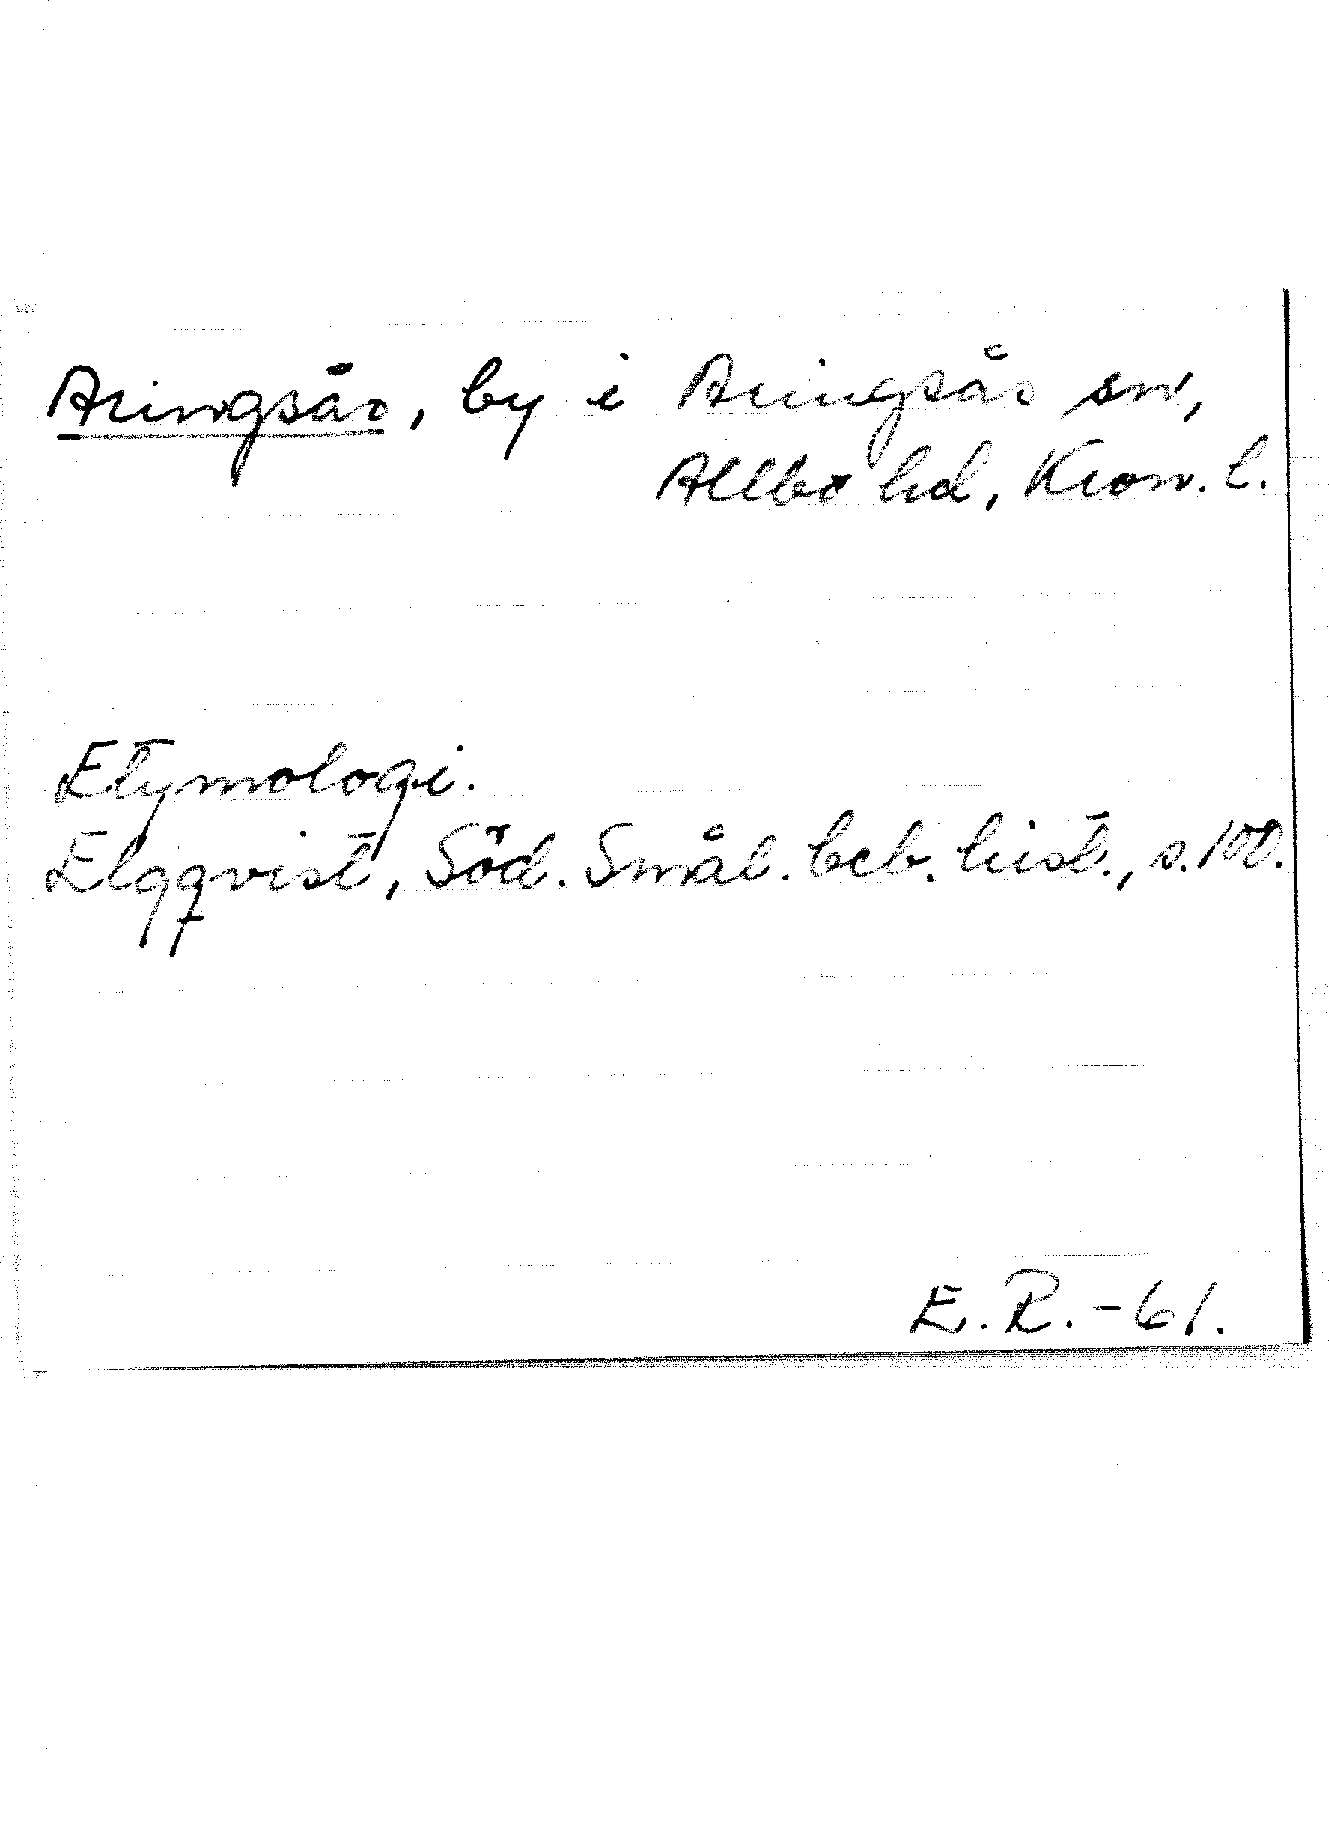 Aringsås, by i Aringsås sn,
Allbo hd, Kron. l.
Etymologi.
Elgqvist, Söd. Smål. beb. hist., s. 100.
E. R. -61.